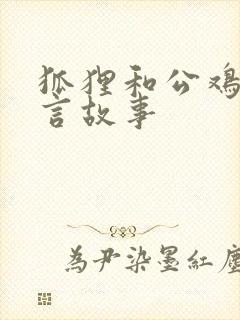 狐狸和公鸡
言故事
為尹染墨紅塵